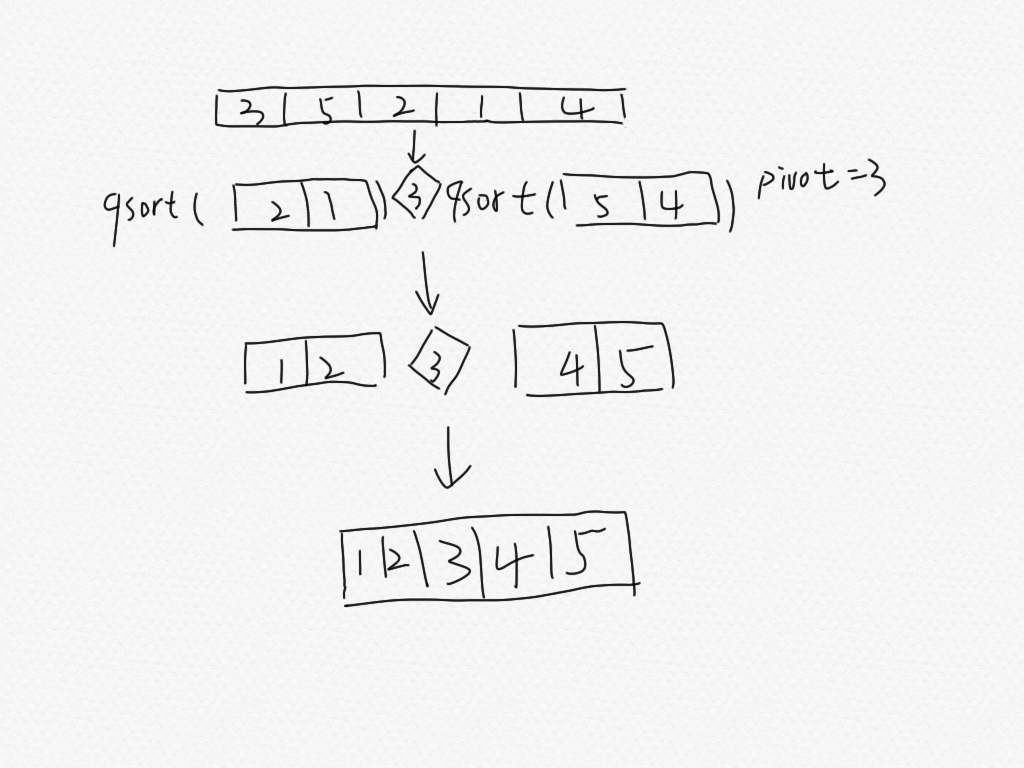 3 5 2 1 4
qsort( 2 1 ) 3 qsort( 5 4 ) pivot=3
1 2 3 4 5
1 2 3 4 5